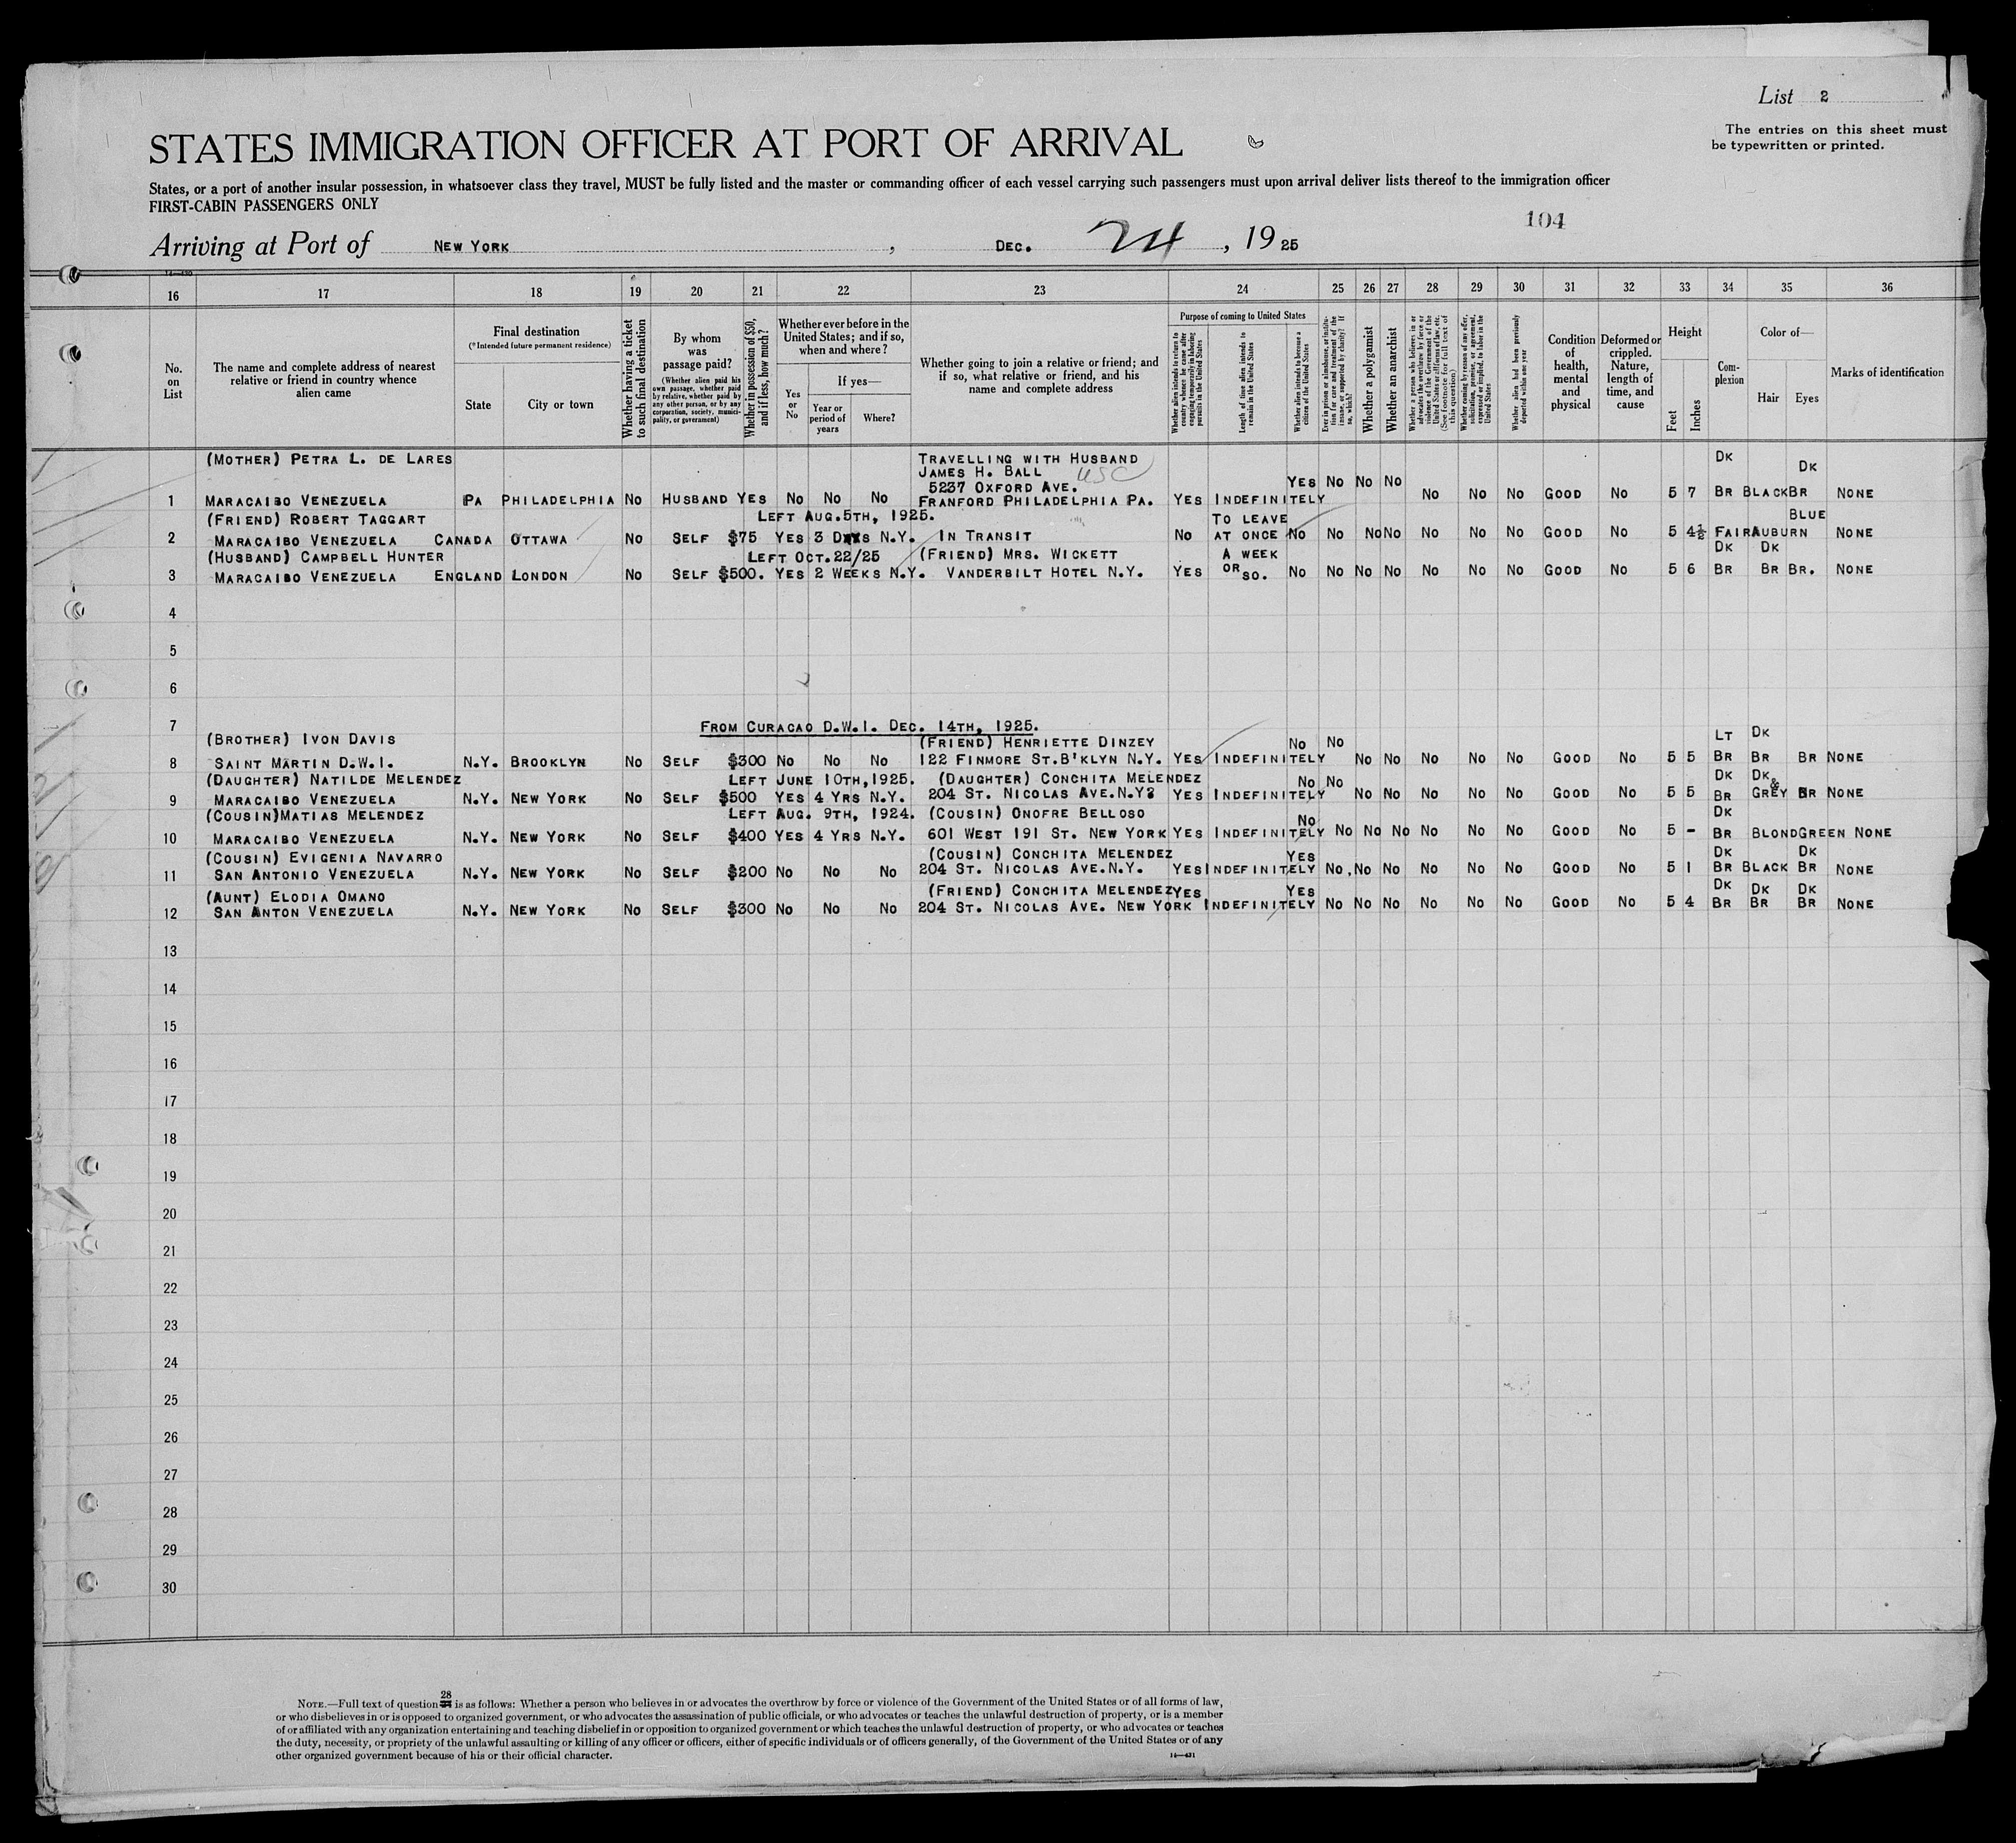 List 2
The entries on this sheet must
be typewritten or printed.
STATES IMMIGRATION OFFICER AT PORT OF ARRIVAL
States, or a port of another insular possession, in whatsoever class they travel, MUST be fully listed and the master or commanding officer of each vessel carrying such passengers must upon arrival deliver lists thereof to the immigration officer
FIRST-CABIN PASSENGERS ONLY
104
Arriving at Port of NEW YORK, DEC. 24, 1925
16 17 18 19 20 21 22 23 24 25 26 27 28 29 30 31 32 33 34 35 36
No. on List
The name and complete address of nearest relative or friend in country whence alien came
Final destination
(* Intended future permanent residence)
State
City or town
Whether having a ticket to such final destination
By whom was passage paid?
(Whether alien paid his own passage, whether paid by relative, whether paid by any other person, or by any corporation, society, municipality, or government)
Whether in possession of $50, and if less, how much?
Whether ever before in the United States; and if so, when and where?
Yes or No
If yes—
Year or period of years
Where?
Whether going to join a relative or friend; and if so, what relative or friend, and his name and complete address
Purpose of coming to United States
Whether alien intends to return to country whence he came after engaging temporarily in laboring pursuits in the United States
Length of time alien intends to remain in the United States
Whether alien intends to become a citizen of the United States
Ever in prison or almshouse, or institution for care and treatment of the insane, or supported by charity? If so, which?
Whether a polygamist
Whether an anarchist
Whether a person who believes in or advocates the overthrow by force or violence of the Government of the United States or all forms of law, etc. (See footnote for full text of this question)
Whether coming by reason of any offer, solicitation, promise, or agreement, expressed or implied, to labor in the United States
Whether alien had been previously deported within one year
Condition of health, mental and physical
Deformed or crippled. Nature, length of time, and cause
Height
Feet
Inches
Complexion
Color of—
Hair
Eyes
Marks of identification
(MOTHER) PETRA L. DE LARES TRAVELLING WITH HUSBAND DK
JAMES H. BALL USC DK
5237 OXFORD AVE. YES NO NO NO
1 MARACAIBO VENEZUELA PA PHILADELPHIA NO HUSBAND YES NO NO NO FRANFORD PHILADELPHIA PA. YES INDEFINITELY NO NO NO GOOD NO 5 7 BR BLACK BR NONE
(FRIEND) ROBERT TAGGART LEFT AUG.5TH, 1925. TO LEAVE BLUE
2 MARACAIBO VENEZUELA CANADA OTTAWA NO SELF $75 YES 3 DAYS N.Y. IN TRANSIT NO AT ONCE NO NO NO NO NO NO NO GOOD NO 5 4½ FAIR AUBURN NONE
(HUSBAND) CAMPBELL HUNTER LEFT OCT.22/25 (FRIEND) MRS. WICKETT A WEEK DK DK
3 MARACAIBO VENEZUELA ENGLAND LONDON NO SELF $500. YES 2 WEEKS N.Y. VANDERBILT HOTEL N.Y. YES OR SO. NO NO NO NO NO NO NO GOOD NO 5 6 BR BR BR. NONE
4
5
6
7 FROM CURACAO D.W.I. DEC. 14TH, 1925.
(BROTHER) IVON DAVIS (FRIEND) HENRIETTE DINZEY NO NO LT DK
8 SAINT MARTIN D.W.I. N.Y. BROOKLYN NO SELF $300 NO NO NO 122 FINMORE ST.B'KLYN N.Y. YES INDEFINITELY NO NO NO NO NO GOOD NO 5 5 BR BR BR NONE
(DAUGHTER) NATILDE MELENDEZ LEFT JUNE 10TH,1925. (DAUGHTER) CONCHITA MELENDEZ NO NO DK DK &
9 MARACAIBO VENEZUELA N.Y. NEW YORK NO SELF $500 YES 4 YRS N.Y. 204 ST. NICOLAS AVE.N.Y? YES INDEFINITELY NO NO NO NO NO GOOD NO 5 5 BR GREY BR NONE
(COUSIN)MATIAS MELENDEZ LEFT AUG. 9TH, 1924. (COUSIN) ONOFRE BELLOSO NO DK
10 MARACAIBO VENEZUELA N.Y. NEW YORK NO SELF $400 YES 4 YRS N.Y. 601 WEST 191 ST. NEW YORK YES INDEFINITELY NO NO NO NO NO NO GOOD NO 5 - BR BLOND GREEN NONE
(COUSIN) EVIGENIA NAVARRO (COUSIN) CONCHITA MELENDEZ YES DK DK
11 SAN ANTONIO VENEZUELA N.Y. NEW YORK NO SELF $200 NO NO NO 204 ST. NICOLAS AVE.N.Y. YES INDEFINITELY NO, NO NO NO NO NO GOOD NO 5 1 BR BLACK BR NONE
(AUNT) ELODIA OMANO (FRIEND) CONCHITA MELENDEZ YES YES DK DK DK
12 SAN ANTON VENEZUELA N.Y. NEW YORK NO SELF $300 NO NO NO 204 ST. NICOLAS AVE. NEW YORK INDEFINITELY NO NO NO NO NO NO GOOD NO 5 4 BR BR BR NONE
13
14
15
16
17
18
19
20
21
22
23
24
25
26
27
28
29
30
28
NOTE.—Full text of question is as follows: Whether a person who believes in or advocates the overthrow by force or violence of the Government of the United States or of all forms of law,
or who disbelieves in or is opposed to organized government, or who advocates the assassination of public officials, or who advocates or teaches the unlawful destruction of property, or is a member
of or affiliated with any organization entertaining and teaching disbelief in or opposition to organized government or which teaches the unlawful destruction of property, or who advocates or teaches
the duty, necessity, or propriety of the unlawful assaulting or killing of any officer or officers, either of specific individuals or of officers generally, of the Government of the United States or of any
other organized government because of his or their official character.
14—431